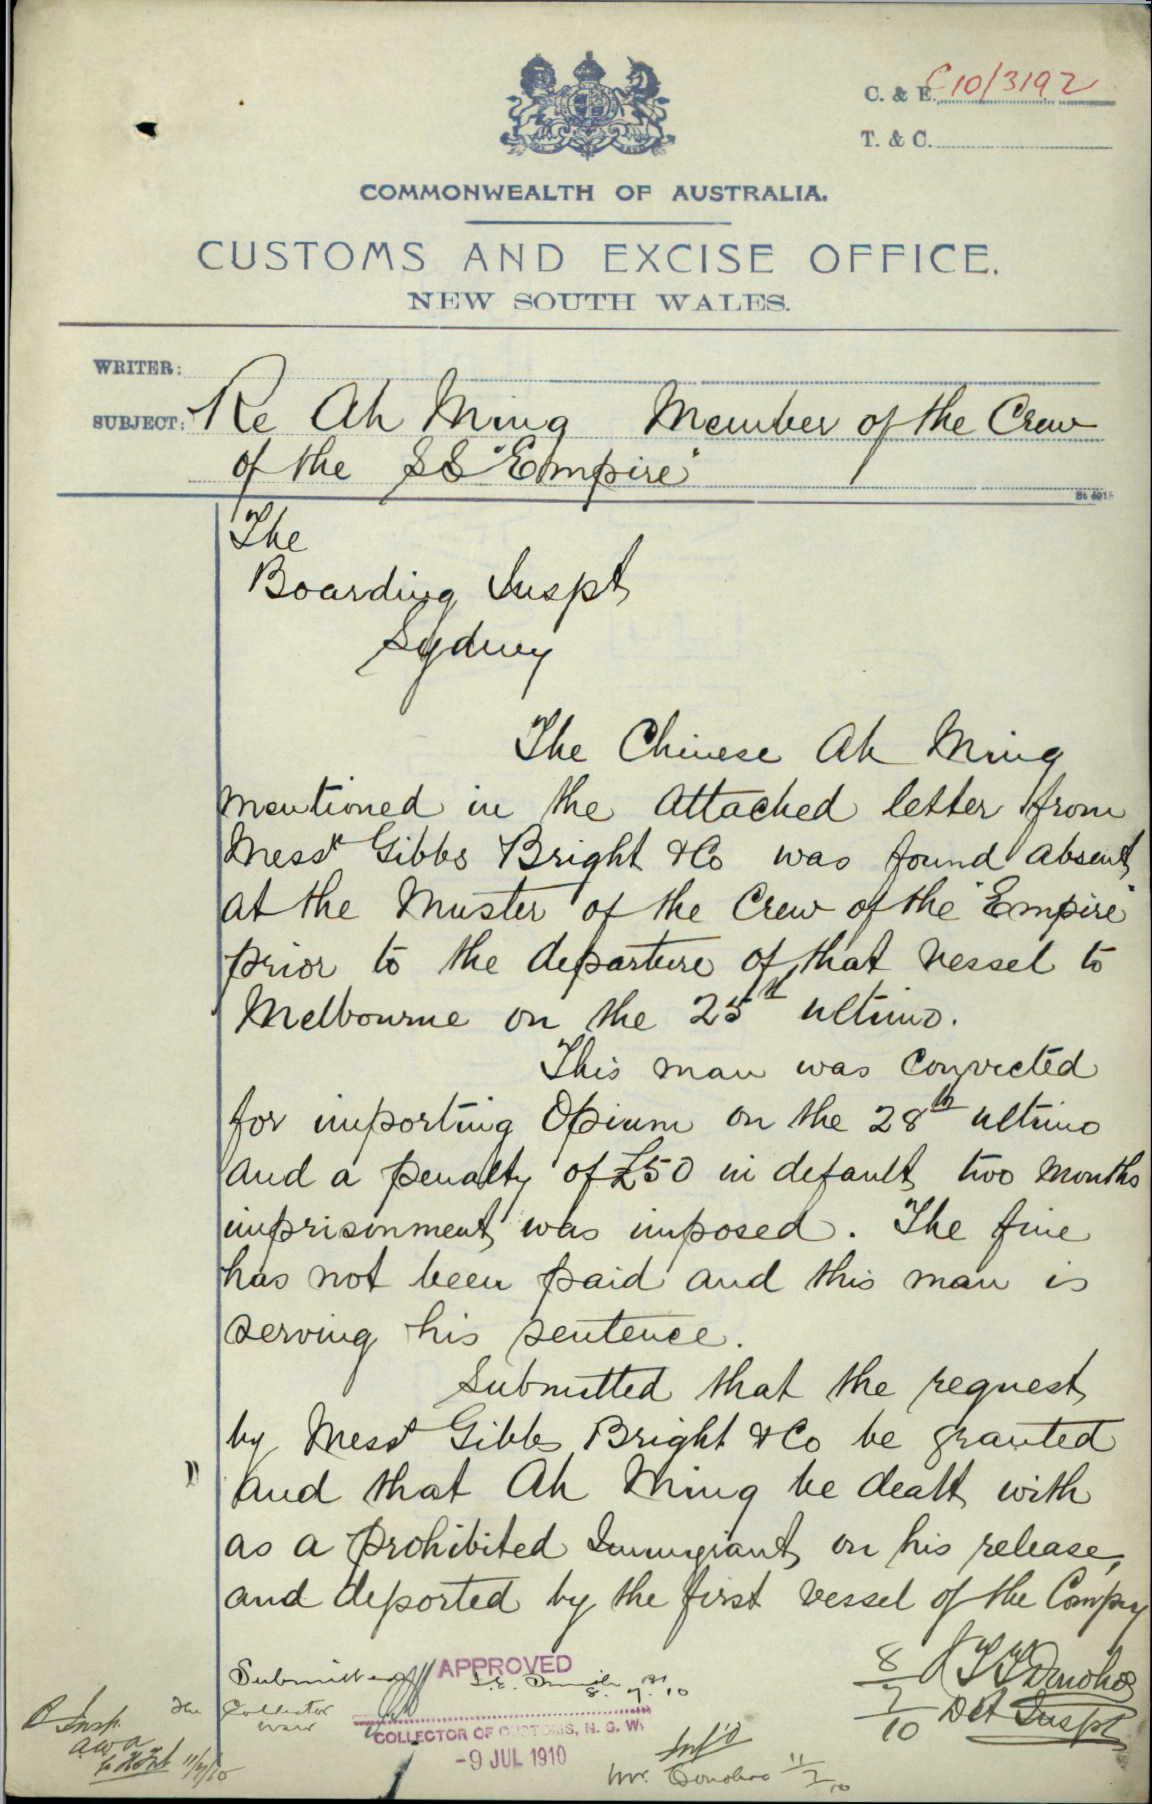 C. & E. C10/3192
T. & C.
COMMONWEALTH OF AUSTRALIA.
CUSTOMS AND EXCISE OFFICE.
NEW SOUTH WALES.
WRITER:
SUBJECT: Re Ah Ming Member of the Crew
of the SS "Empire"
The
Boarding Inspt
Sydney
The Chinese Ah Ming
mentioned in the attached letter from
Messrs Gibbs Bright & Co was found absent
at the Muster of the Crew of the "Empire"
prior to the departure of that vessel to
Melbourne on the 25th ultimo.
This man was convicted
for importing Opium on the 28th ultimo
and a penalty of £50 in default two months
imprisonment was imposed. The fine
has not been paid and this man is
serving his sentence.
Submitted that the request
by Messrs Gibbs Bright & Co be granted
and that Ah Ming be dealt with
as a prohibited Immigrant on his release,
and deported by the first vessel of the Compy
8/7/10 Donohoe
Det Inspt
Submitted
8.7.10
The Collector
APPROVED
COLLECTOR OF CUSTOMS, N. S. W.
-9 JUL 1910
B Insp.
11/7/10
Inf'd
Mr. Donohoe 11/7/10